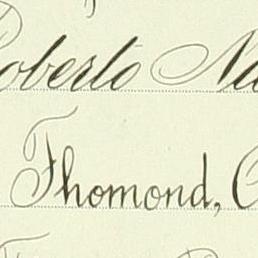 Roberto Na
Thomond, C